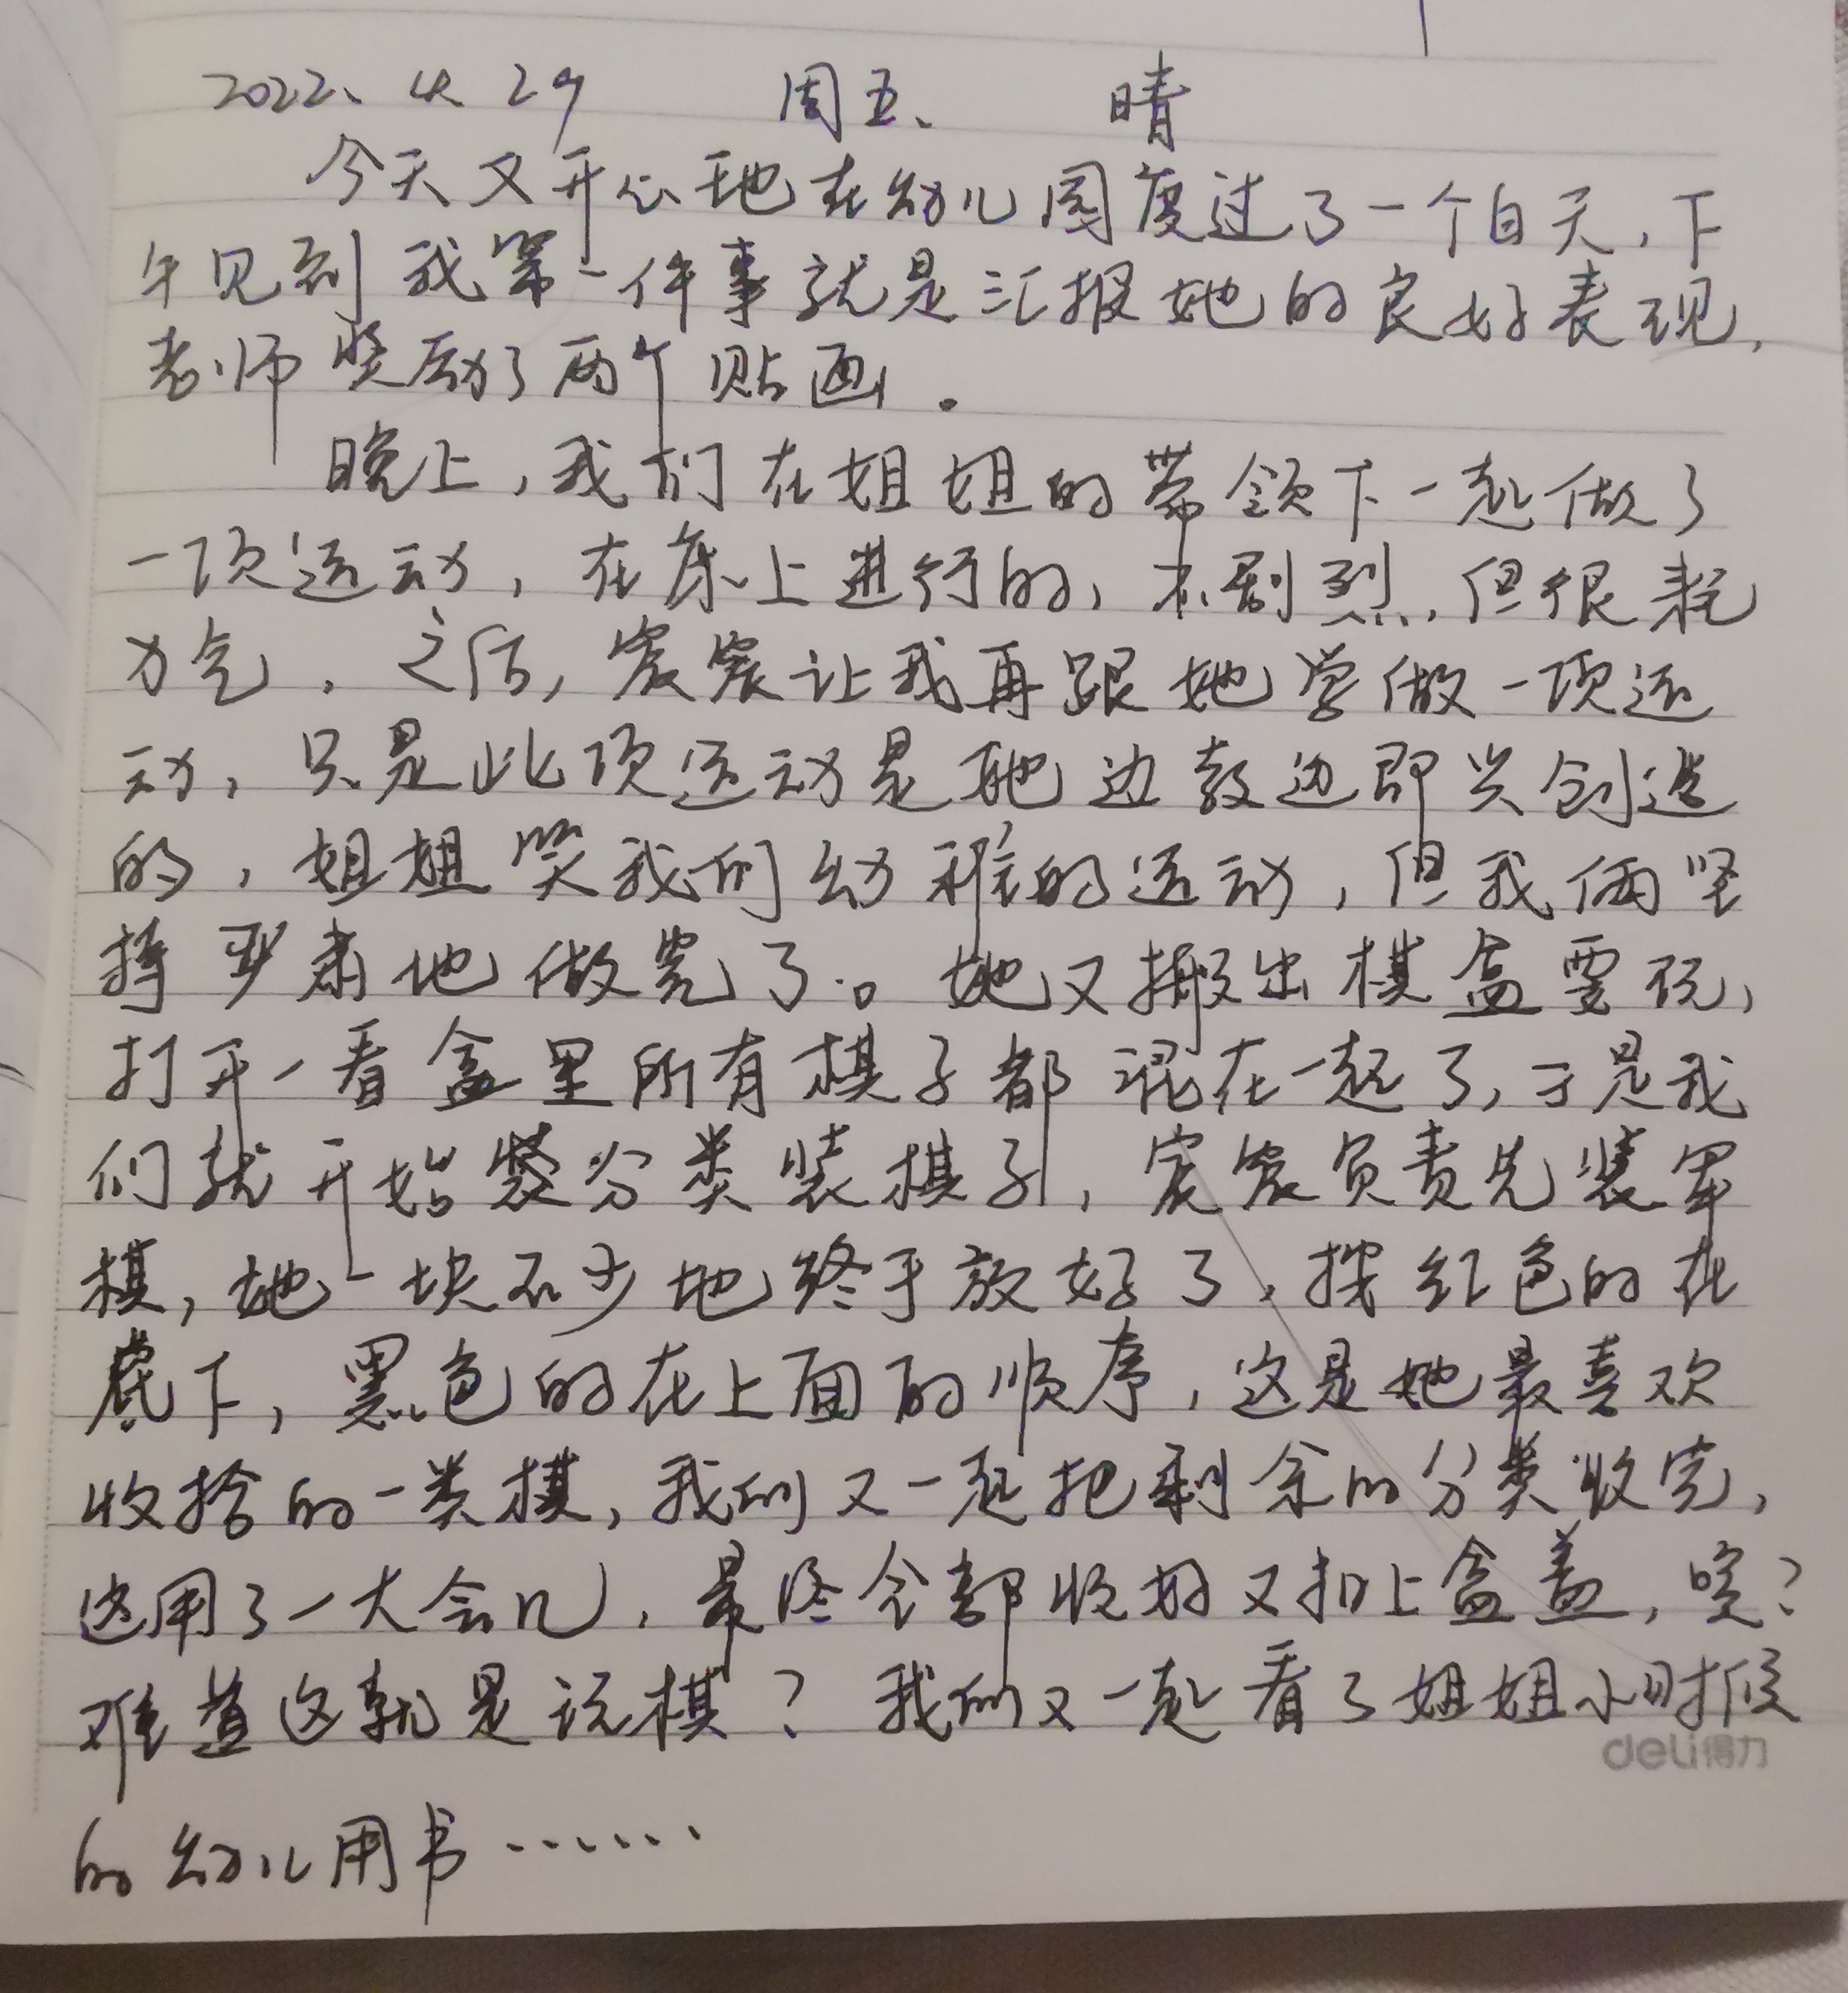 2022、4、29 周五、 晴
今天又开心地在幼儿园度过了一个白天，下
午见到我第一件事就是汇报她的良好表现，
老师奖励了两个贴画。
晚上，我们在姐姐的带领下一起做了
一项运动，在床上进行的，不剧烈，但很耗
力气，之后，宸宸让我再跟她学做一项运
动，只是此项运动是她边教边即兴创造
的，姐姐笑我们幼稚的运动，但我俩坚
持严肃地做完了。她又搬出棋盒要玩，
打开一看盒里所有棋子都混在一起了，于是我
们就开始分类装棋子，宸宸负责先装军
棋，她一块不少地终于放好了，按红色的在
底下，黑色的在上面的顺序，这是她最喜欢
收拾的一类棋，我们又一起把剩余的分类收完，
这用了一大会儿，最终全部收好又扣上盒盖，
难道这就是玩棋？我们又一起看了姐姐小时候
deli得力
的幼儿用书……